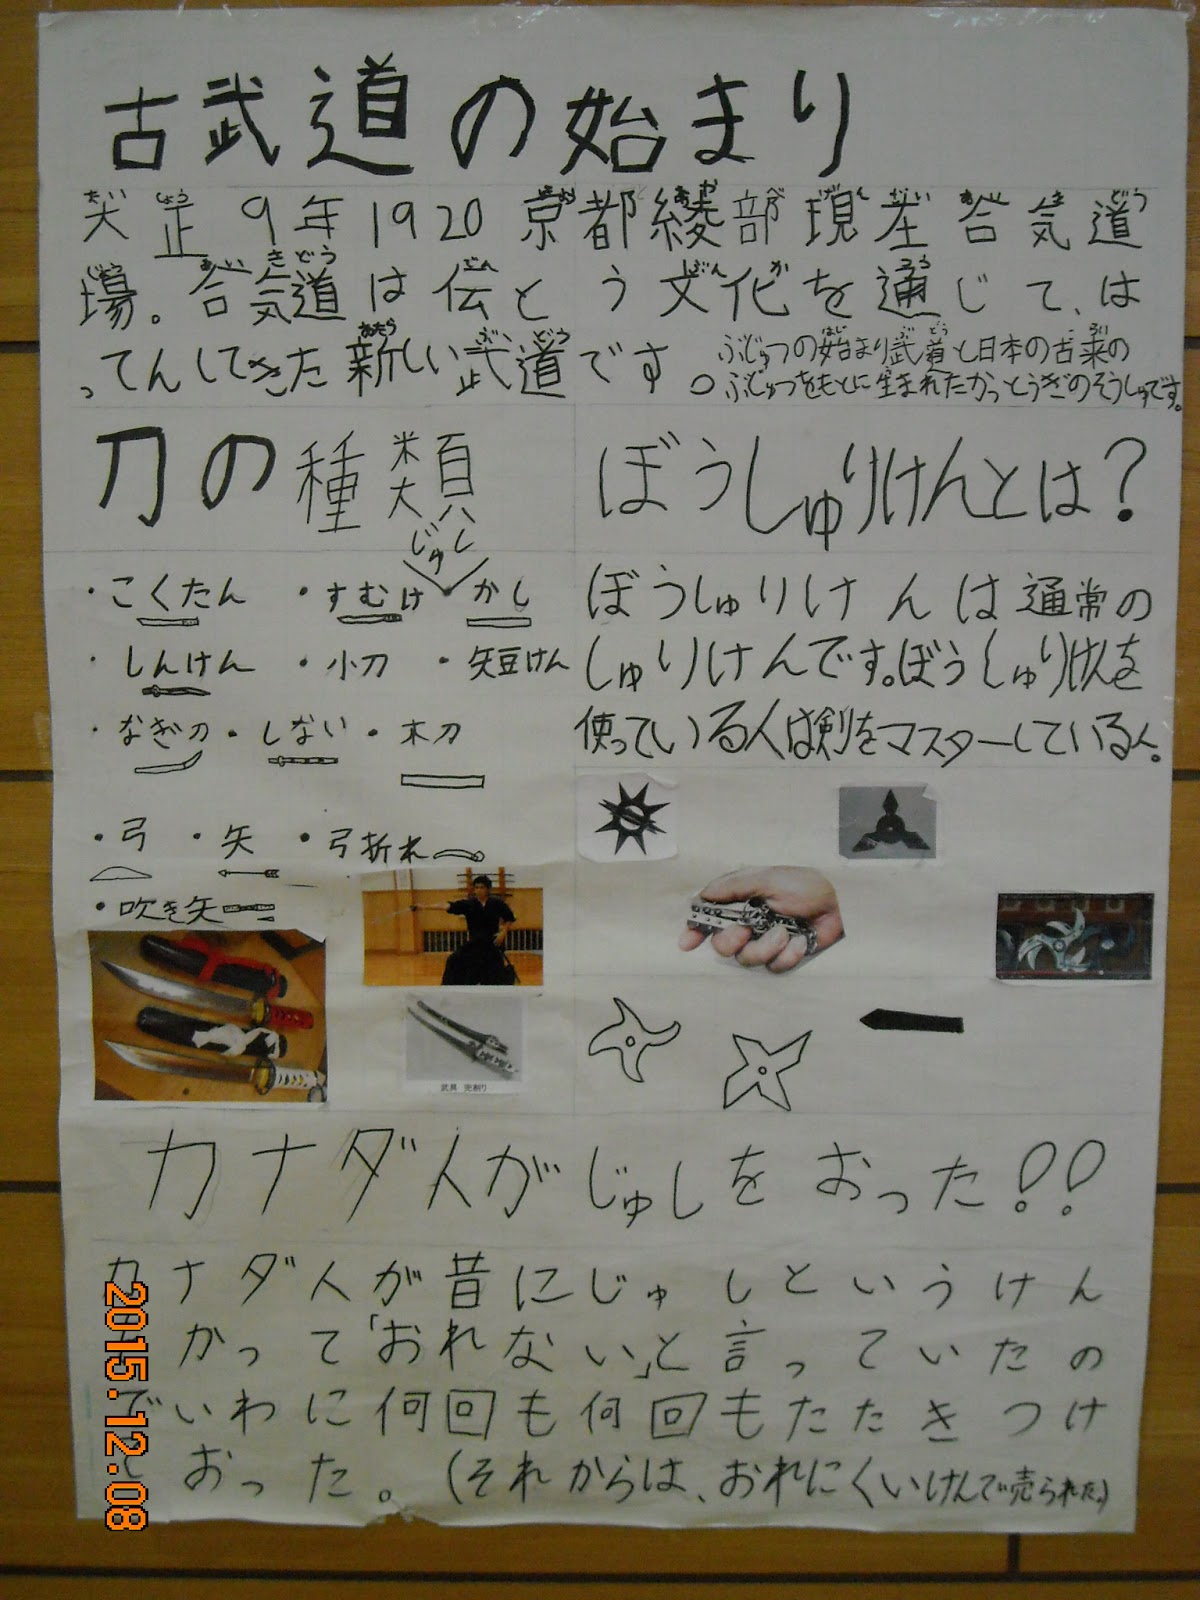 古武道の始まり
大正9年1920京都綾部現在合気道
場。合気道は伝とう文化を通じて、は
ってんしてきた新しい武道です。
ぶじゅつの始まり武道と日本の古来の
ぶじゅつをもとに生まれたかっとうぎのそうしょです。
刀の種類
じゅし
・こくたん ・すむけ・かし
・しんけん ・小刀 ・矢豆けん
・なぎ刀・しない・木刀
・弓 ・矢 ・弓折れ
・吹き矢
武具 兜割り
ぼうしゅりけんとは?
ぼうしゅりけんは通常の
しゅりけんです。ぼうしゅりけんを
使っている人は剣をマスターしている人。
カナダ人がじゅしをおった!!
カナダ人が昔にじゅしというけん
かって「おれない」と言っていたの
でいわに何回も何回もたたきつけ
ておった。(それからは、おれにくいけんで売られた。)
2015.12.08